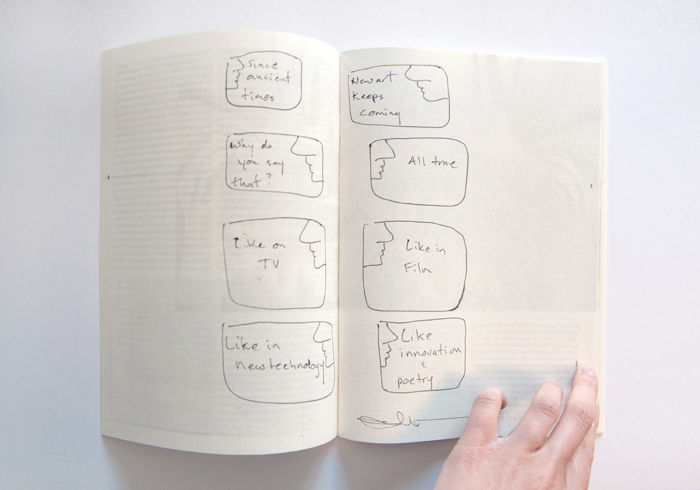 Since
ancient
times
Why do
you say
that?
Like on
TV
Like in
new technology
New art
keeps
coming
All true
Like in
Film
Like
innovation
&
poetry